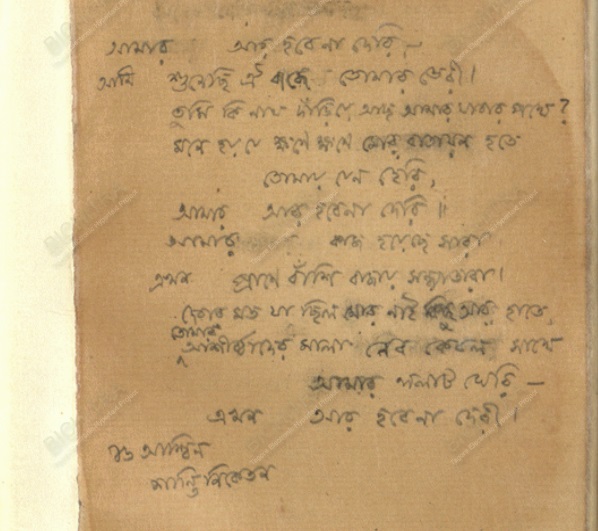 আমার আর হবে না দেরি,—
আমি শুনেছি ঐ বাজে তোমার ভেরী।
তুমি কি নাথ দাঁড়িয়ে আছ আমার যাবার পথে?
মনে হয় যে ক্ষণে ক্ষণে মোর বাতায়ন হতে
তোমায় যেন হেরি,
আমার আর হবেনা দেরি॥
আমার কাজ হয়েছে সারা
এখন প্রাণে বাঁশি বাজায় সন্ধ্যাতারা।
দেবার মত যা ছিল মোর নাই কিছু আর হাতে,
তোমার
আশীর্ব্বাদের মালা নেব কেবল মাথে
আমার ললাট ঘেরি—
এখন আর হবেনা দেরী।
১৬ আশ্বিন
শান্তিনিকেতন